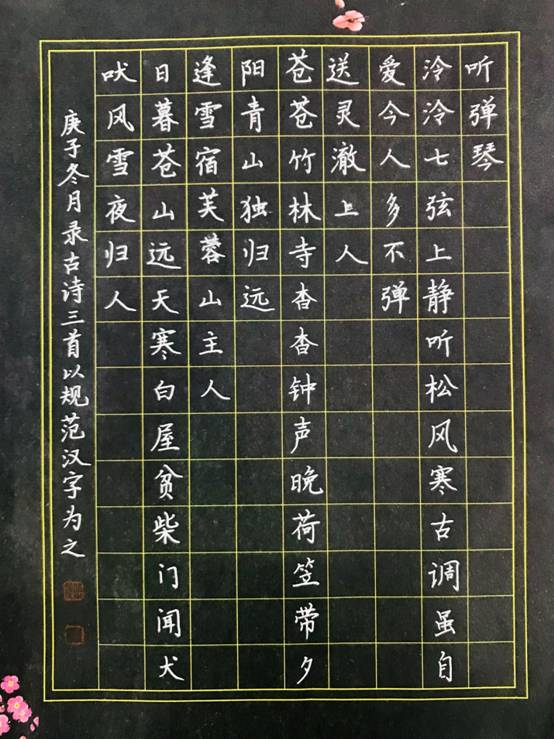 听弹琴
泠泠七弦上静听松风寒古调虽自
爱今人多不弹
送灵澈上人
苍苍竹林寺杳杳钟声晚荷笠带夕
阳青山独归远
逢雪宿芙蓉山主人
日暮苍山远天寒白屋贫柴门闻犬
吠风雪夜归人
庚子冬月录古诗三首以规范汉字为之